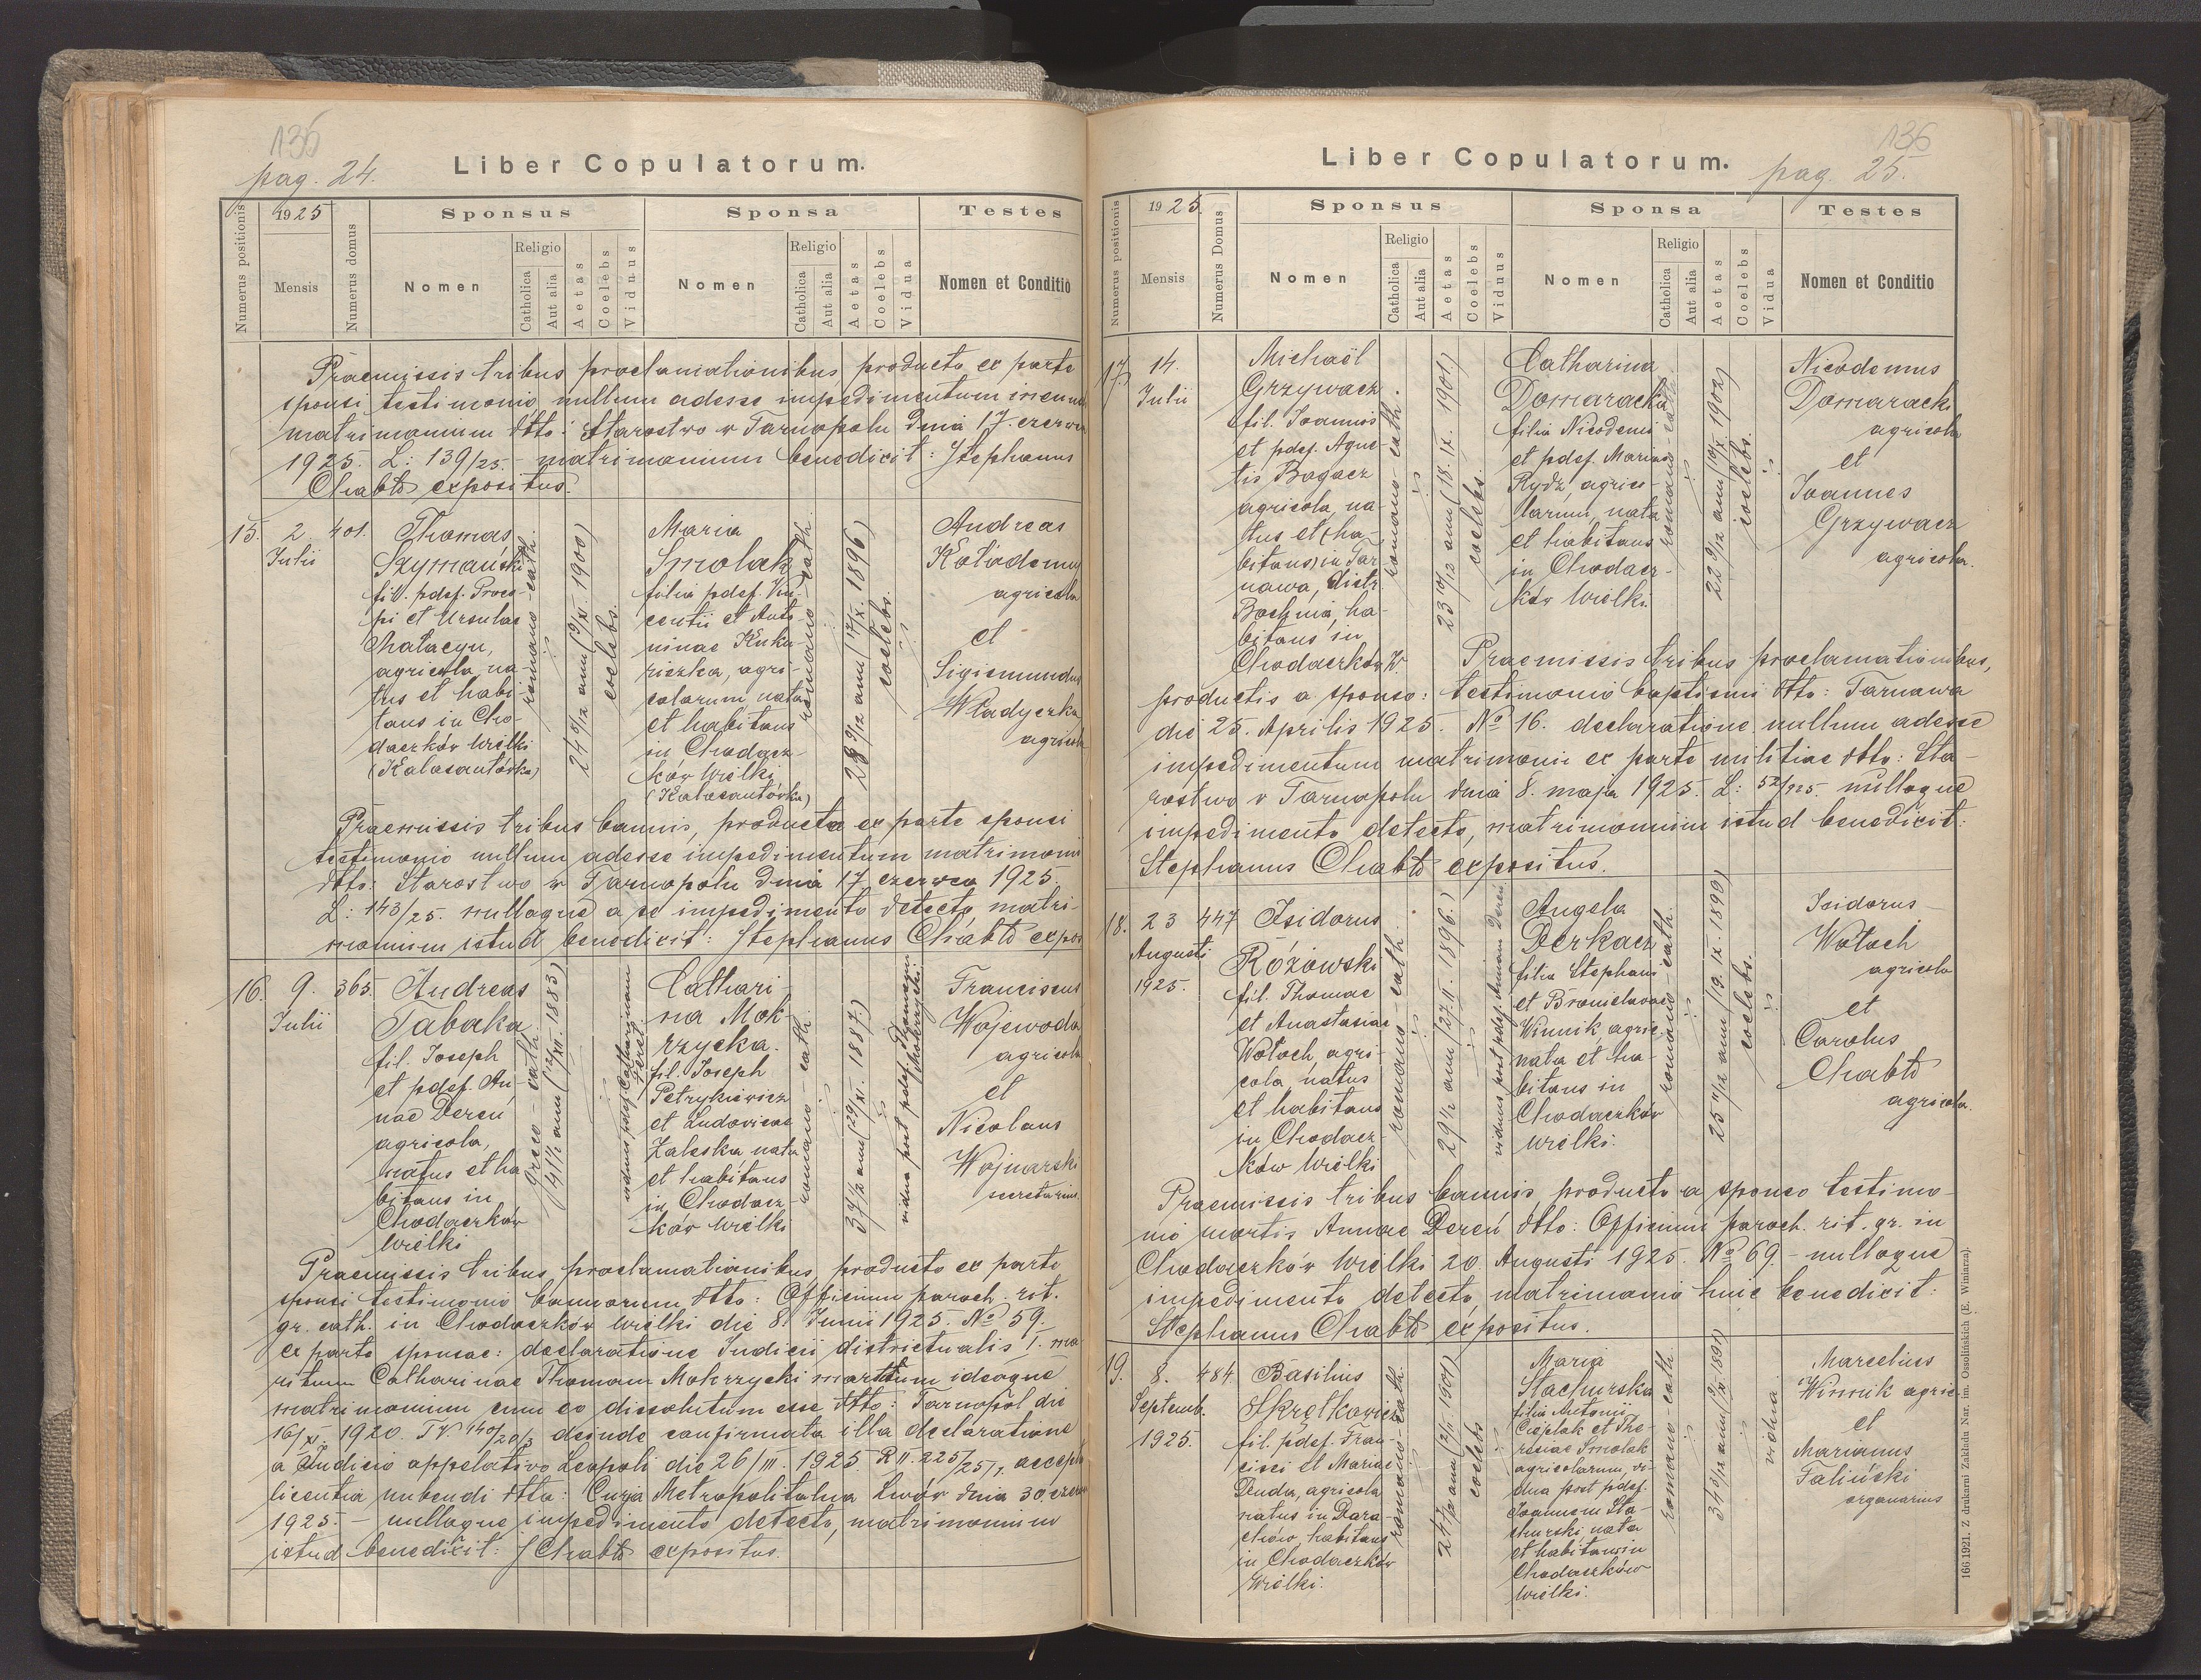 136
pag. 24.
Liber Copulatorum.
Numerus positionis
1925
Mensis
Numerus domus
Sponsus
Nomen
Religio
Catholica
Aut alia
Aetas
Coelebs
Viduus
Sponsa
Nomen
Religio
Catholica
Aut alia
Aetas
Coelebs
Vidua
Testes
Nomen et Conditio
Praemissis tribus proclamationibus, producto ex parte
sponsi testimonio nullum adesse impedimentum
matrimonium dtto: Starostwo w Tarnopolu dnia 17. czerwca
1925. L: 139/25. - matrimonium benedixit: Stephanus
Chabło expositus.
15.
2
Julii
401.
Thomas
Szymański
fil. pdef. Proco-
pi et Ursulae
Matacyn,
agricola, na-
tus et habi
tans in Cho-
daczków Wielki
(Kalasantówka)
romano-cath.
24 8/12 ann (9/XI. 1900)
coelebs.
Maria
Smolak
filia pdef. Vin-
centii et Anto-
ninae Kuku
riczka, agri-
colarum, nata
et habitans
in Chodacz-
ków Wielki
(Kalasantówka)
romano-cath.
28 9/12 ann (17/X. 1896)
coelebs.
Andreas
agricola
et
Sigismundus
Władyczka
agricola
Praemissis tribus bannis, producto ex parte sponsi
testimonio nullum adesse impedimentum matrimonii
dtto: Starostwo w Tarnopolu dnia 17 czerwca 1925.
L: 143/25. nulloque a se impedimento detecto, matri-
monium istud benedixit: Stephanus Chabło expos
16.
9.
Julii
365.
Andreas
Tabaka
fil. Joseph
et pdef. An-
nae Dereń
agricola,
natus et ha
bitans in
Chodaczków
Wielki
graeco-cath.
41 1/2 ann (12/XII. 1883)
viduus pdef. Catharinam
Dereń.
Cathari-
na Mok-
rzycka.
fil. Joseph
Petrykiewicz
et Ludovicae
Zaleska, nata
et habitans
in Chodacz
ków Wielki
romano-cath.
37 1/2 ann (29/XI. 1887)
vidua post pdef. Thomam
Mokrzycki
Franciscus
Wojewoda
agricola
et
Nicolaus
Wojnarski
secretarius
Praemissis tribus proclamationibus, producto ex parte
sponsi testimonio bannorum dtto: Officium paroch. rit.
gr. cath. in Chodaczków Wielki die 8. Junii 1925. No 59.
ex parte sponsae: declaratione Judicii districtualis I. ma
ritum Catharinae Thomam Mokrzycki mortuum ideoque
matrimonium cum eo dissolutum esse dtto: Tarnopol die
16/XI. 1920. TV 140/20/3 deinde confirmata illa declaratione
a Judicio appelativo Leopoli die 26/III. 1925 R II. 225/25/1, accepta
licentia nubendi dtto: Curja Metropolitalna Lwów dnia 30. czerw
1925 - nulloque impedimento detecto, matrimonium
istud benedixit: S Chabło expositus.
136
pag. 25.
Liber Copulatorum.
Numerus positionis
1925.
Mensis
Numerus Domus
Sponsus
Nomen
Religio
Catholica
Aut alia
Aetas
Coelebs
Viduus
Sponsa
Nomen
Religio
Catholica
Aut alia
Aetas
Coelebs
Vidua
Testes
Nomen et Conditio
17.
14.
Julii
Michaël
Grzywacz
fil. Joannis
et pdef. Agne-
tis Bogacz
agricola, na-
tus et (ha-
bitans) in Tar-
nawa, distr.
Bochnia, ha-
bitans in
Chodaczków W.
romano-cath.
23 10/12 ann (18. IX. 1901)
coelebs.
Catharina
Domaracka
filia Nicodemi
et pdef. Mariae
Rydz, agrico-
larum, nata
et habitans
in Chodacz-
ków Wielki.
romano-cath.
22 9/12 ann (10/X. 1902)
coelebs.
Nicodemus
Domaracki
agricola
et
Joannes
Grzywacz
agricola.
Praemissis tribus proclamationibus,
productis a sponso: testimonio baptismi dtto: Tarnawa
die 25. Aprilis 1925. No 16. declaratione nullum adesse
impedimentum matrimonii ex parte militiae dtto: Sta-
rostwo w Tarnopolu dnia 8. maja 1925. L: 52/25. nulloque
impedimento detecto, matrimonium istud benedixit:
Stephanus Chabło expositus.
18.
23
Augusti
1925.
447
Isidorus
Rózowski
fil. Thomae
et Anastasiae
Wołoch, agri-
cola, natus
et habitans
in Chodacz-
ków Wielki
romano-cath.
29 1/2 ann (27. II. 1896.)
viduus post pdef. Annam Dereń
Angela
Derkacz
filia Stephani
et Bronislavae
Winnik, agric.
nata et ha-
bitans in
Chodaczków
Wielki.
romano-cath.
25 11/12 ann (19. IX. 1899)
coelebs.
Isidorus
Wołoch
agricola
et
Carolus
Chabło
agricola.
Praemissis tribus bannis, producto a sponso testimo-
nio mortis Annae Dereń dtto: Officium paroch. rit. gr. in
Chodaczków Wielki 20. Augusti 1925. No 69. - nulloque
impedimento detecto, matrimonio huic benedixit:
Stephanus Chabło expositus.
19.
8.
Septemb.
1925.
484.
Basilius
Skretkowicz
fil. pdef. Fran-
cisci et Mariae
Duda, agricola
natus in Dara-
chów, habitans
in Chodaczków
Wielki.
romano-cath.
coelebs
Maria
Stachurska
filia Antonii
Cieplak et The-
resiae Smolak
agricolarum, vi-
dua post pdef.
Joannem Sta-
churski, nata
et habitans in
Chodaczków
Wielki.
romano-cath.
vidua
Marcelius
Winnik agric.
et
Marianus
Faliński
organarius
166 1921. Z drukarni Zakładu Nar. im. Ossolińskich (E. Winiarza).